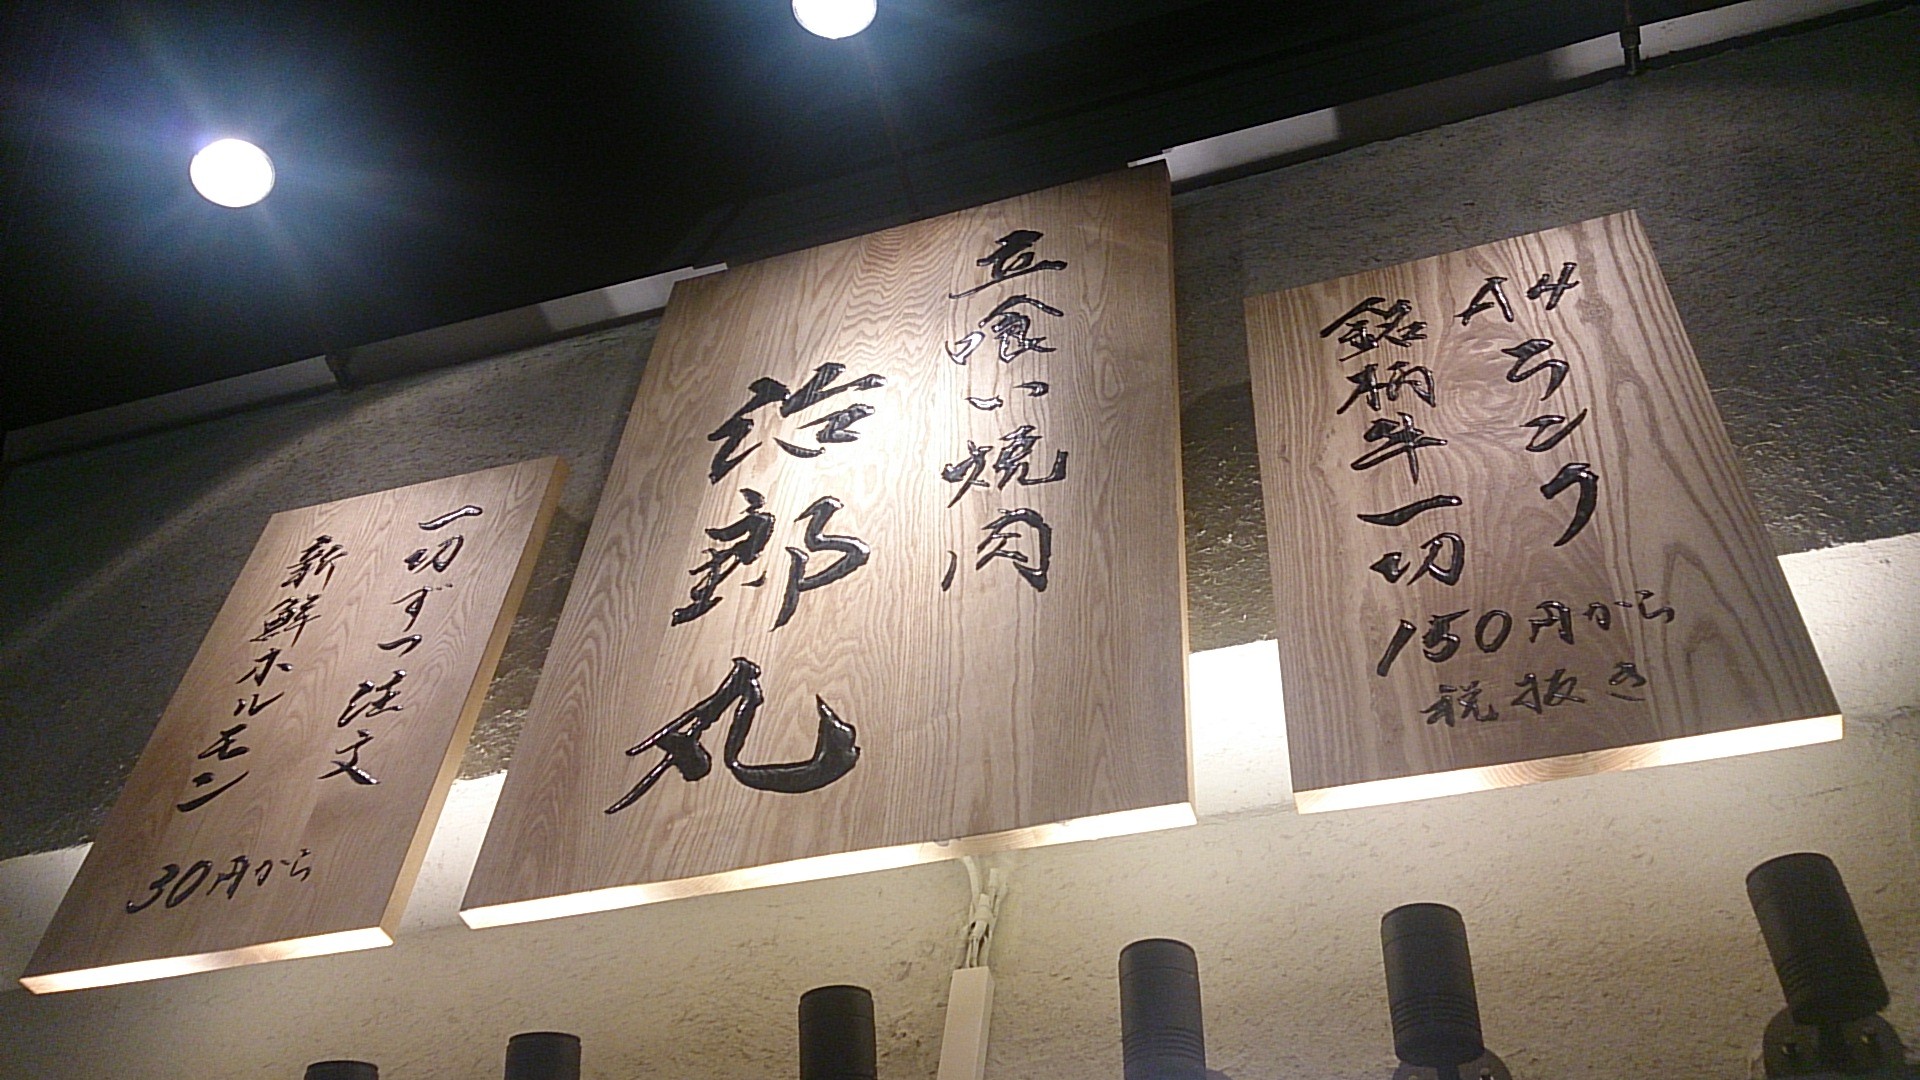 A4ランク
銘柄牛一切
150円から
税抜き
立喰い焼肉
治郎丸
一切ずつ注文
新鮮ホルモン
30円から